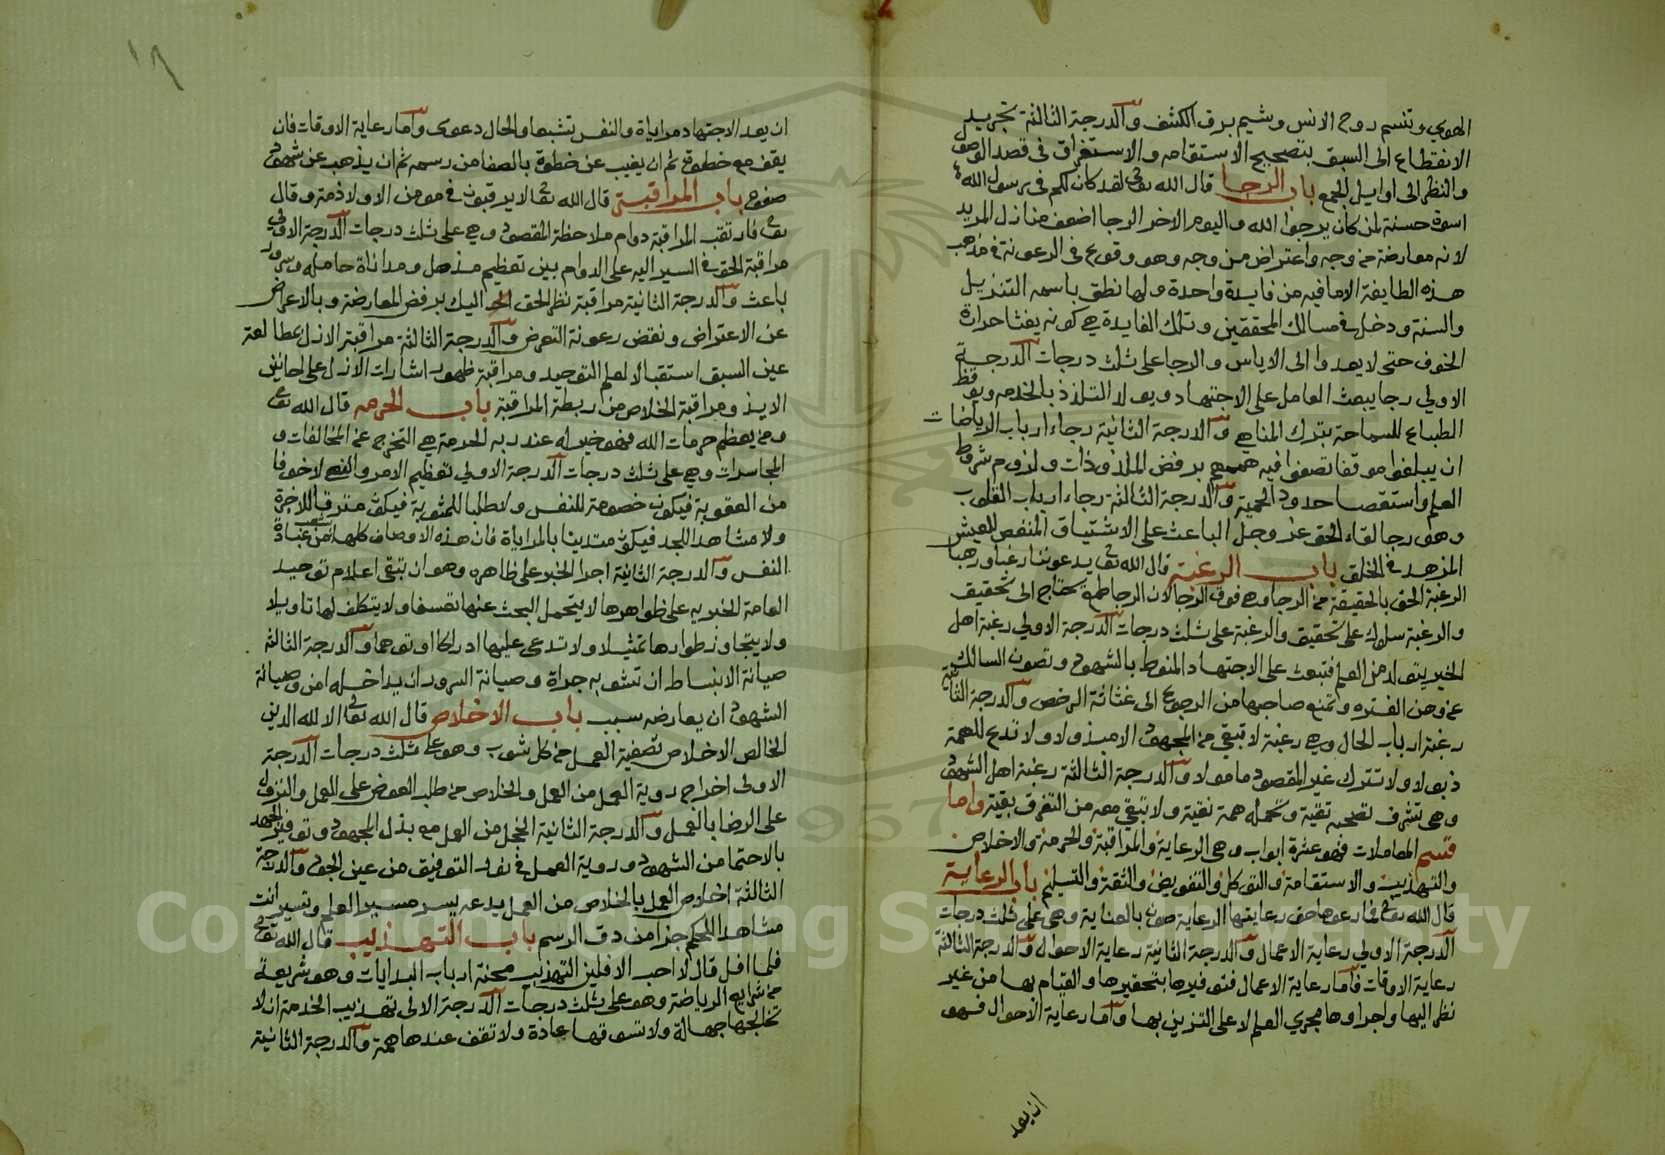 الهوي وتنسم روح الانس وشيم برق الكشف والدرجة الثالثة تجريد
الانقطاع الى السبق بتصحيح الاستقامه والاستغراق في قصد الوصول
والنظر الى اوايل الجمع باب الرجا قال الله تعالى لقد كان لكم في رسول الله
اسوة حسنة لمن كان يرجوا الله واليوم الاخر الرجا اضعف منازل المريد
لانه معارضة من وجه واعتراض من وجه وهو وقوع في الرعونة في مذهب
هذه الطايفة الا ما فيه من فايدة واحدة ولها نطق باسمه التنزيل
والسنة ودخل في مسالك المحققين وتلك الفايدة هي كونه يفثا حرارة
الخوف حتى لا يعدوا الى الاياس والرجا على ثلث درجات الدرجة
الاولي رجا يبعث العامل على الاجتهاد ويولد التلذذ بالخدمه ويوقظ
الطباع للسماحة بترك المناهي والدرجة الثانية رجاء ارباب الرياضات
ان يبلغوا موقفا تصفوا فيه هممهم برفض الملذوذات ولزوم شرط
العلم واستقصا حدود الحمية والدرجة الثالثة رجاء ارباب القلوب
وهو رجا لقاء الحق عز وجل الباعث على الاشتياق المنغص للعيش
المزهد في الخلق باب الرغبة قال الله تعالى يدعوننا رغبا ورهبا
الرغبة الحق بالحقيقة من الرجا وهي فوق الرجا لان الرجا طمع يحتاج الى تحقيق
والرغبة سلوك على تحقيق والرغبة على ثلث درجات الدرجة الاولي رغبة اهل
الخبر يتولد من العلم فتبعث على الاجتهاد المنوط بالشهود وتصون السالك
عن وهن الفترة وتمنع صاحبها من الرجوع الى غثاثة الرخص والدرجة الثانية
رغبة ارباب الحال وهي رغبة لا تبقي من المجهود الا مبذولا ولا تدع للهمة
ذبولا ولا تترك غير المقصود مامولا والدرجة الثالثة رغبة اهل الشهود
وهي تشرف تصحبه تقية وتحمله همة نقية ولا تبقي معه من التفرق بقية واما
قسم المعاملات فهو عشرة ابواب وهي الرعاية والمراقبة والحرمة والاخلاص
والتهذيب والاستقامة والتوكل والتفويض والثقة والتسليم باب الرعاية
قال الله تعالى فما رعوها حق رعايتها الرعاية صون بالعناية وهي على ثلث درجات
الدرجة الاولي رعاية الاعمال والدرجة الثانية رعاية الاحوال والدرجة الثالثة
رعاية الاوقات فاما رعاية الاعمال فتوفيرها بتحقيرها والقيام بها من غير
نظر اليها واجراوها مجري العلم لا على التزين بها واما رعاية الاحوال فهو
ان يعد
١٩
ان يعد الاجتهاد مراياة والنفس تشبعا والحال دعوى واما رعاية الاوقات فان
يقف مع خطوة ثم ان يغيب عن خطوة بالصفا من رسمه ثم ان يذهب عن شهود
صفوه باب المراقبة قال الله تعالى لا يرقبون في مومن الا ولا ذمة وقال
تعالى فارتقب المراقبة دوام ملاحظة المقصود وهي على ثلث درجات الدرجة الاولى
مراقبة الحق في السير اليه على الدوام بين تعظيم مذهل ومداناة حاملة وسرور
باعث والدرجة الثانية مراقبة نظر الحق اليك برفض المعارضة وبالاعراض
عن الاعتراض ونقض رعونة التعرض والدرجة الثالثة مراقبة الازل بمطالعة
عين السبق استقبالا لعلم التوحيد ومراقبة ظهور اشارات الازل على احايين
الابد ومراقبة الخلاص من ربطة المراقبة باب الحرمه قال الله تعالى
ومن يعظم حرمات الله فهو خير له عند ربه الحرمة هي التحرج عن المخالفات و
المجاسرات وهي على ثلث درجات الدرجة الاولي تعظيم الامر والنهي لا خوفا
من العقوبة فيكون خصومة للنفس ولا طلبا للمثوبة فيكون مسترقا للاجرة
ولا مشاهدا للجد فيكون متدينا بالمراياة فان هذه الاوصاف كلها من شعب عبادة
النفس والدرجة الثانية اجرا الخبر على ظاهره وهو ان تبقى اعلام توحيد
العامة الخبريه على ظواهرها لا يتحمل البحث عنها تعسفا ولا يتكلف لها تاويلا
ولا يتجاوز ظواهرها تمثيلا ولا تدعي عليها ادراكا او توهما والدرجة الثالثة
صيانة الانبساط ان تشوبه جراة وصيانة السرور ان يداخله امن وصيانة
الشهود ان يعارضه سبب باب الاخلاص قال الله تعالى الا لله الدين
الخالص الاخلاص تصفية العمل من كل شوب وهو على ثلث درجات الدرجة
الاولى اخراج روية العمل من العمل والخلاص من طلب العوض على العمل والنزول
على الرضا بالعمل والدرجة الثانية الخجل من العمل مع بذل المجهود وتوفير الجهد
بالاحتما من الشهود وروية العمل في نور التوفيق من عين الجود والدرجة
الثالثة اخلاص العمل بالخلاص من العمل يدعه يسير مسير العلم وتسير انت
مشاهدا للحكم حرا من رق الرسم باب التهذيب قال الله تعالى
فلما افل قال لا احب الافلين التهذيب محنة ارباب البدايات وهو شريعة
من شرايع الرياضة وهو على ثلث درجات الدرجة الاولى تهذيب الخدمة ان لا
تخالجها جهالة ولا تسوقها عادة ولا تقف عندها همة والدرجة الثانية
Copyright © King Saud University
1957